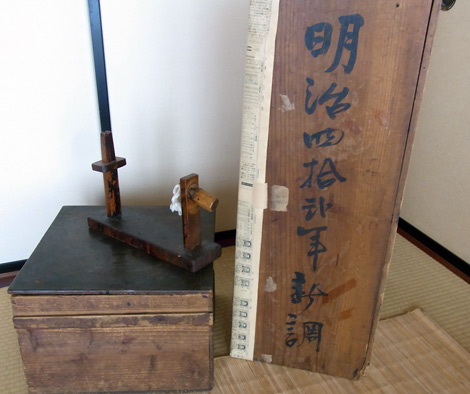 明治四拾弐年新調